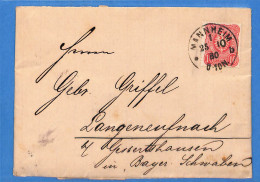 MANNHEIM
1
25 10
80
Herren
Gebr. Griffel
Langeneufnach
b/ Ysseltshausen
in Bayer. Schwaben